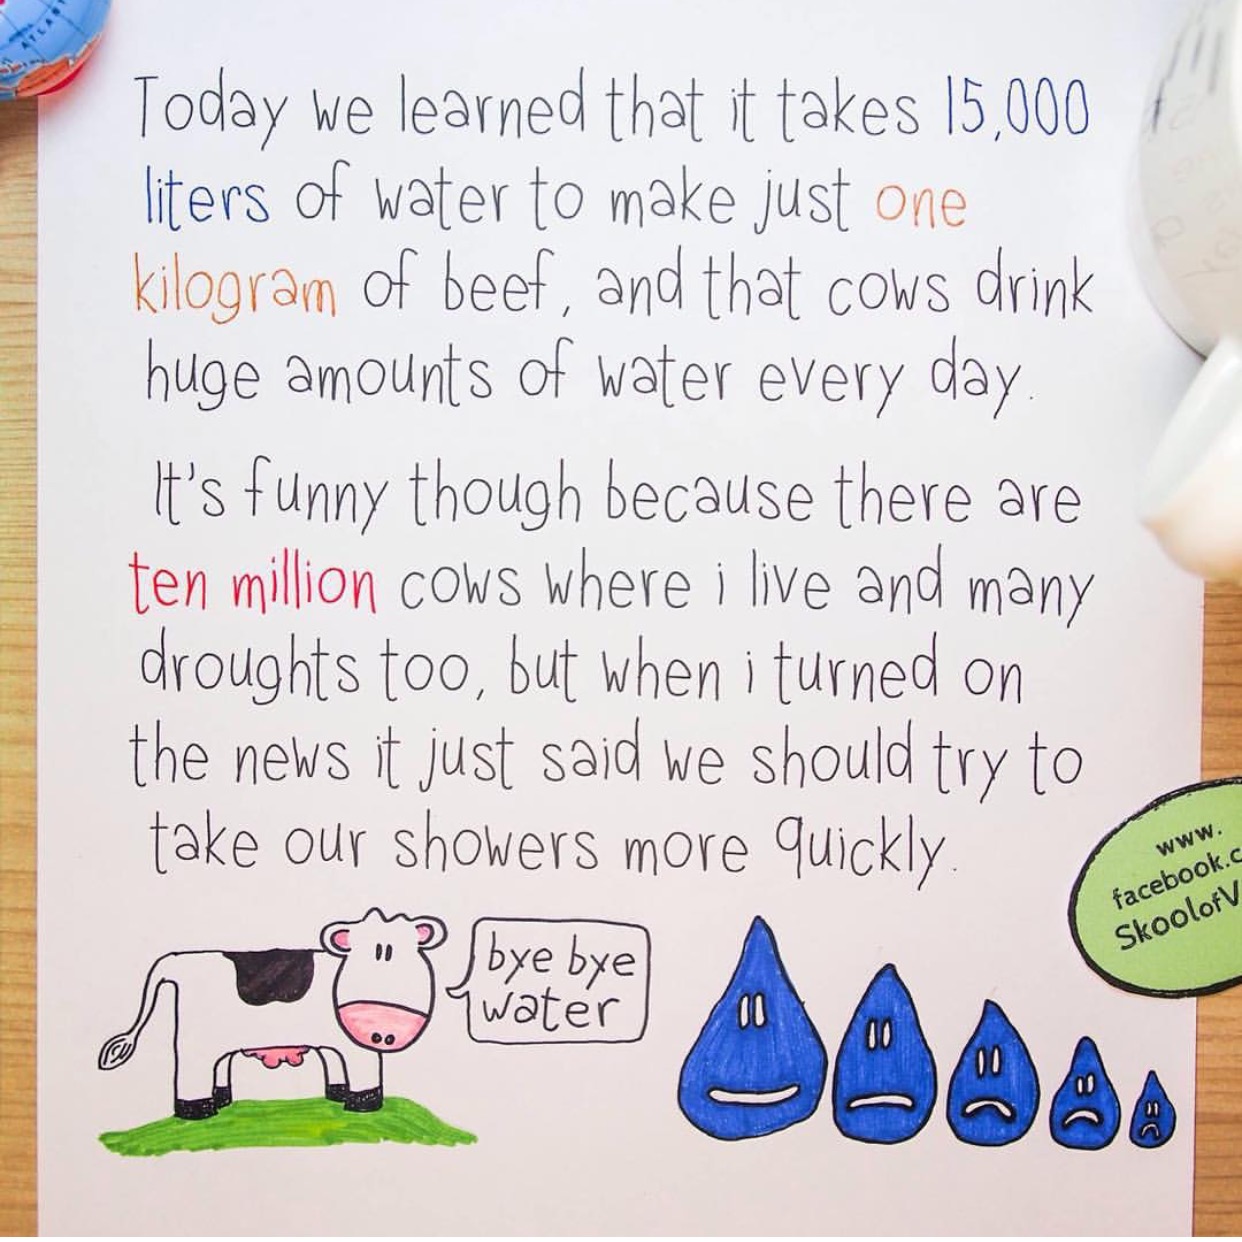 Today we learned that it takes 15,000
liters of water to make just one
kilogram of beef, and that cows drink
huge amounts of water every day.
It's funny though because there are
ten million cows where i live and many
droughts too, but when i turned on
the news it just said we should try to
take our showers more quickly.
bye bye
water
www.
facebook.c
SkoolofV